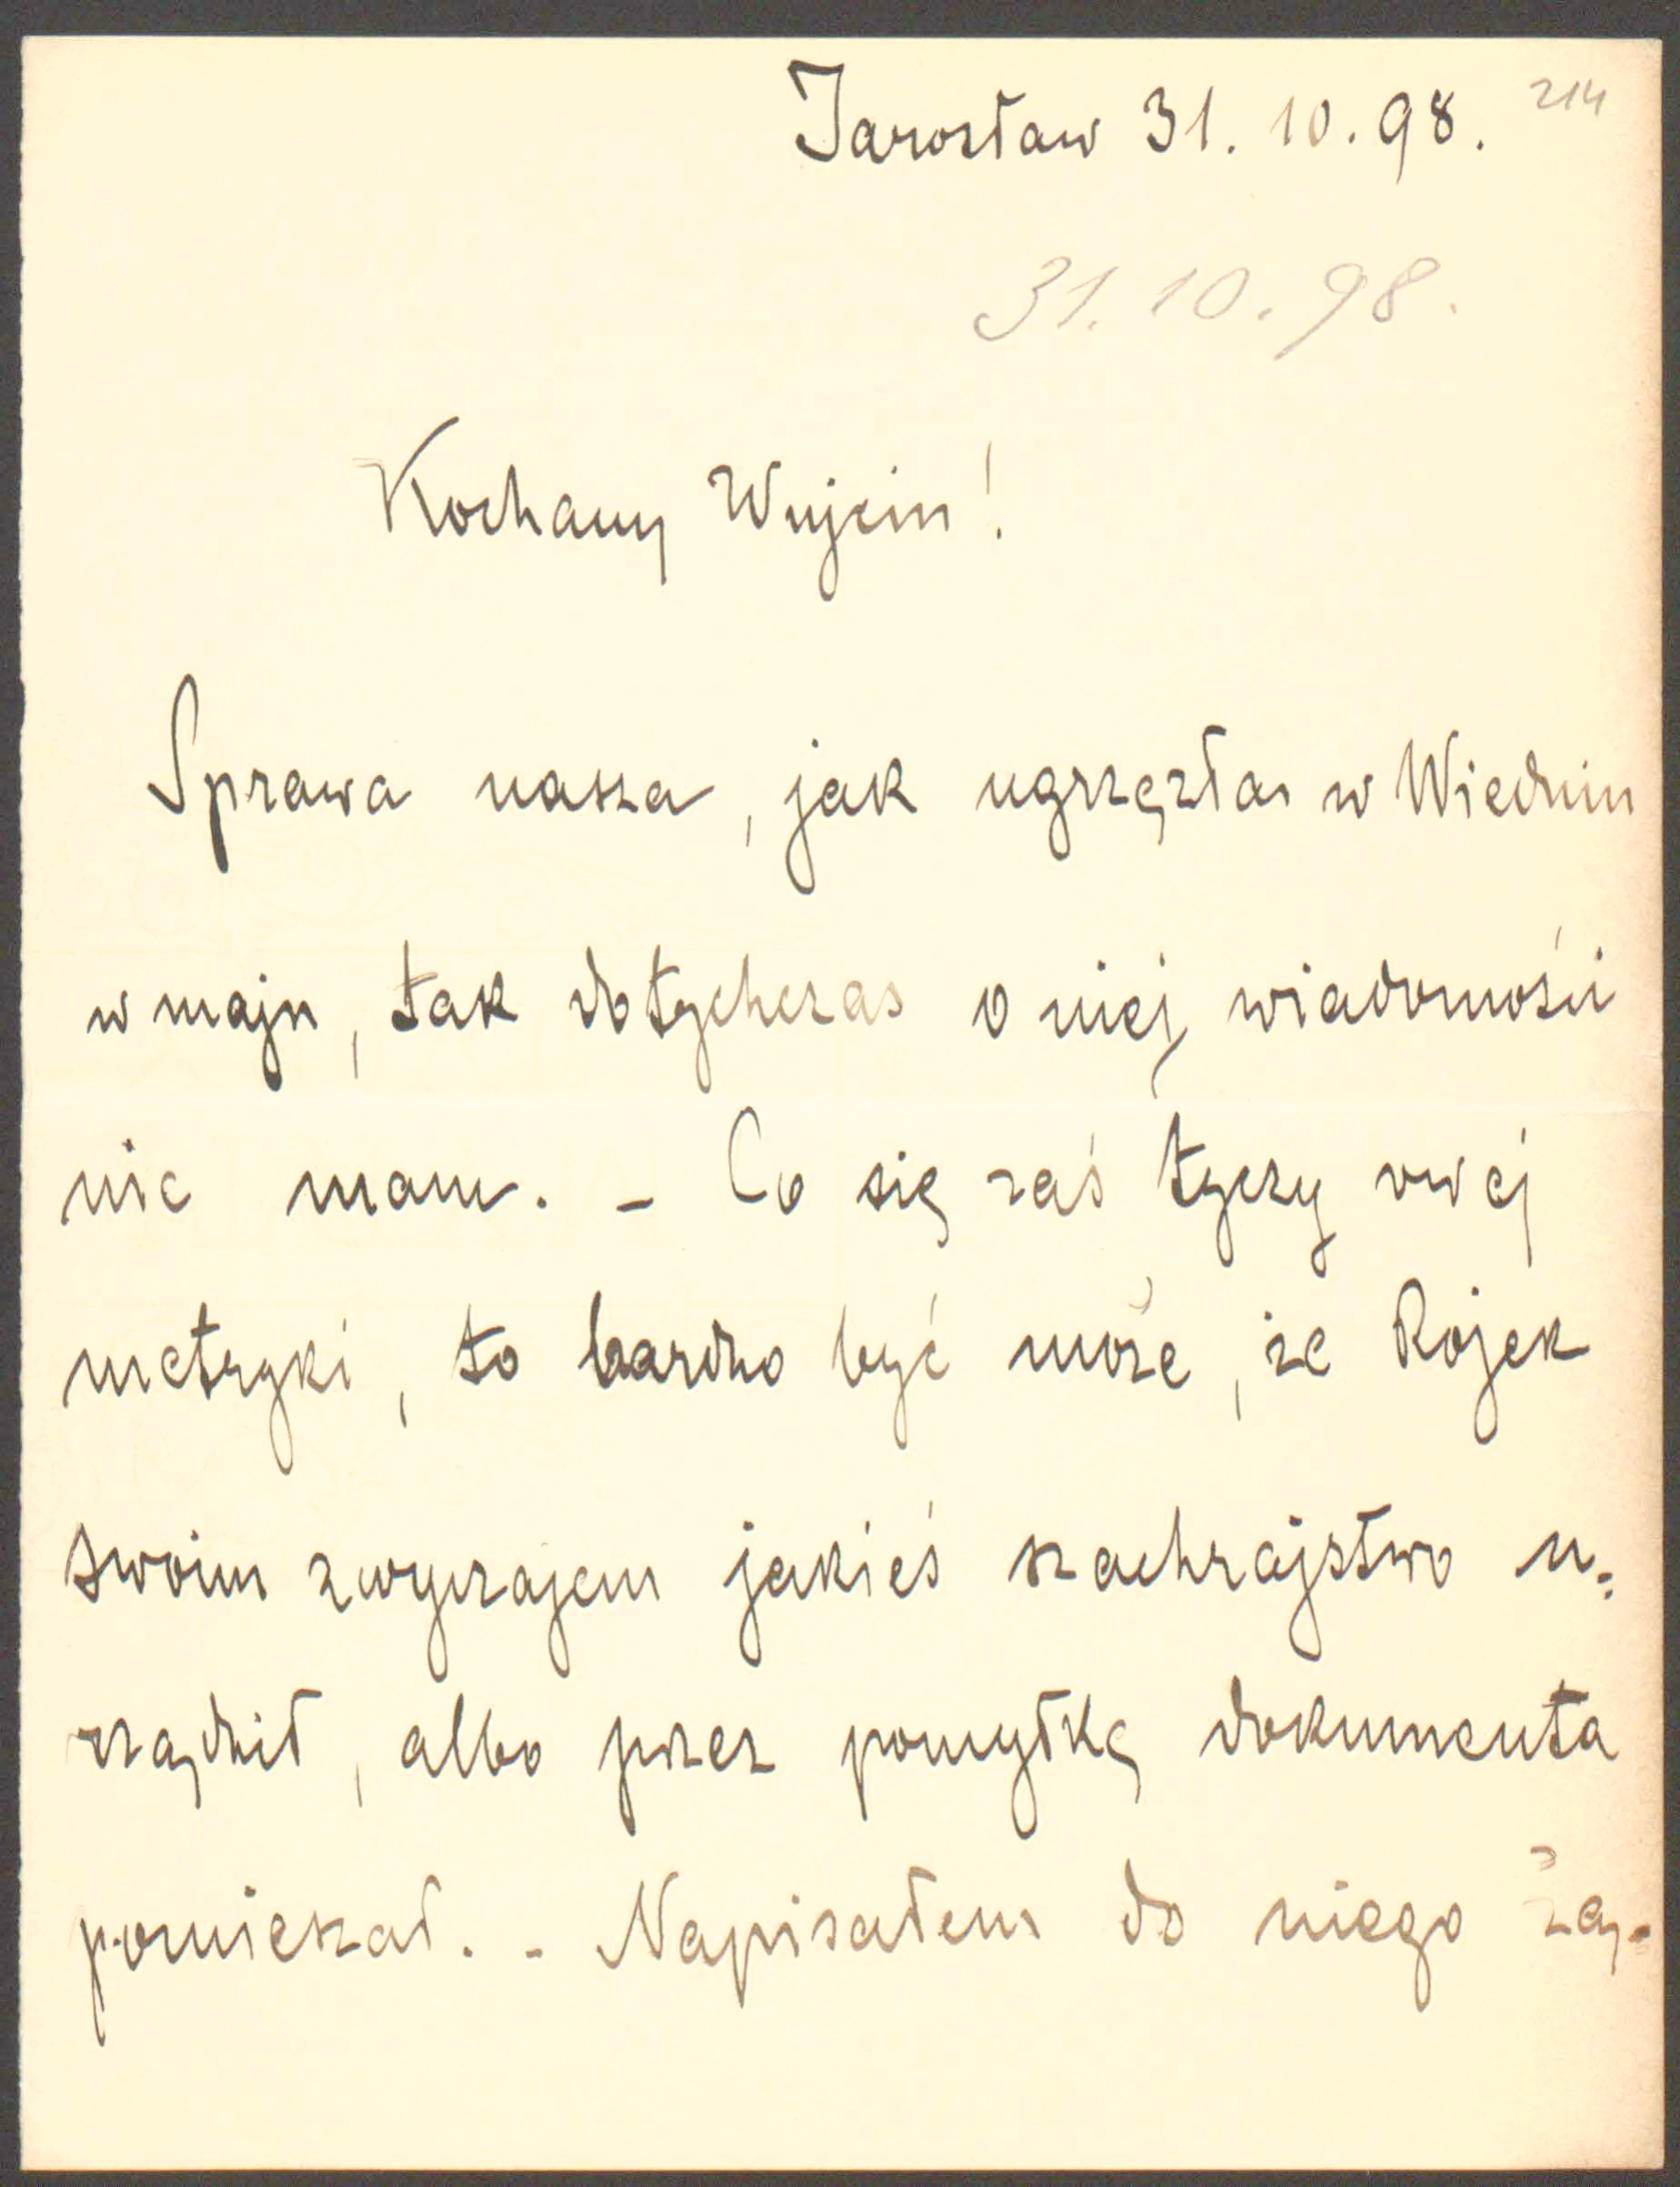 Jarosław 31. 10. 98. 214
31. 10. 98.
Kochany Wujciu!
Sprawa nasza, jak ugrzęzła w Wiedniu
w maju, tak dotychczas o niej wiadomości
nie mam. - Co się zaś tyczy owej
metryki, to bardzo być może, że Rojek
swoim zwyczajem jakieś szachrajstwo u-
rządził, albo przez pomyłkę dokumenta
pomieszał. - Napisałem do niego żą-